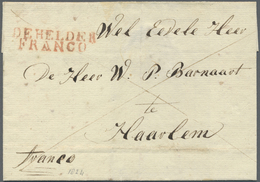 DE HELDER
FRANCO
Wel Edele Heer
De Heer W. P. Barnaart
te
Haarlem
franco